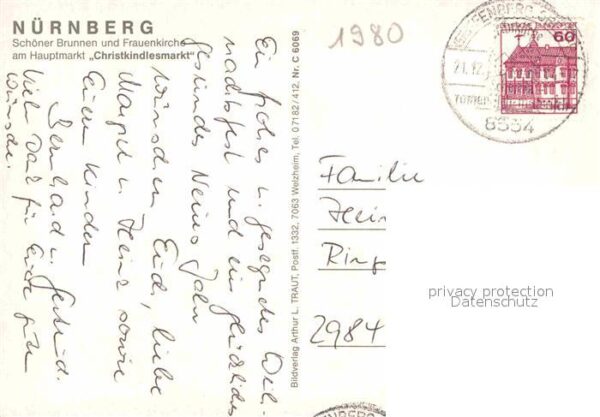 NÜRNBERG
Schöner Brunnen und Frauenkirche
am Hauptmarkt „Christkindlesmarkt"
Ein frohes u. gesegnetes Weih-
nachtsfest und ein glückliches
gesundes Neues Jahr
wünschen Euch, liebe
Margot u. Heinz sowie
Euren Kindern
Bernhard u. Gertrud.
Viel Dank für Eure gute
Wünsche.
Bildverlag Arthur L. TRAUT, Postf. 1332, 7063 Welzheim, Tel. 07182/412, Nr. C 6069
1980
60
21.12.
8554
Familie
Hein
Ring
2984
privacy protection
Datenschutz